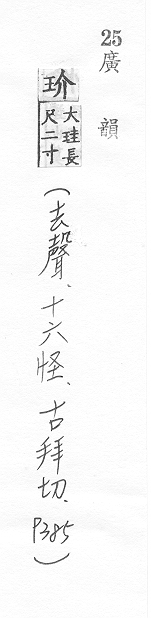 25
廣韻
玠
大珪長
尺二寸
(去聲、十六怪、古拜切、P385)